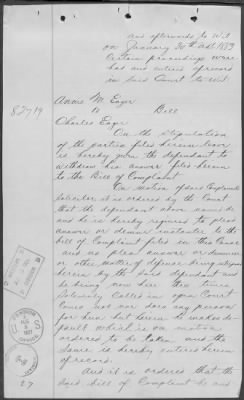 And afterwards to wit
on January 30th AD 1873
Certain proceedings were
had and entered of record
in said Court to wit.
Annie M. Eager
vs Bill
Charles Eager
On the stipulation
of the parties filed herein leave
is hereby given the defendant to
withdraw his answer filed herein
to the Bill of Complaint
On motion of said Complainants
Solicitor it is ordered by the Court
that the defendant above named be
and he is hereby required to plead
answer or demur instanter to the
bill of Complaint filed in this Cause
and no plea answer or demurrer
or other matter of defense being
herein by the said defendant and
he being now here three times
Solemnly Called in open Court
Comes not nor does any person
for him but herein he makes de-
fault which is on motion
ordered to be taken and the
same is hereby entered herein
of record.
And it is ordered that the
said bill of Complaint be and
82719
27